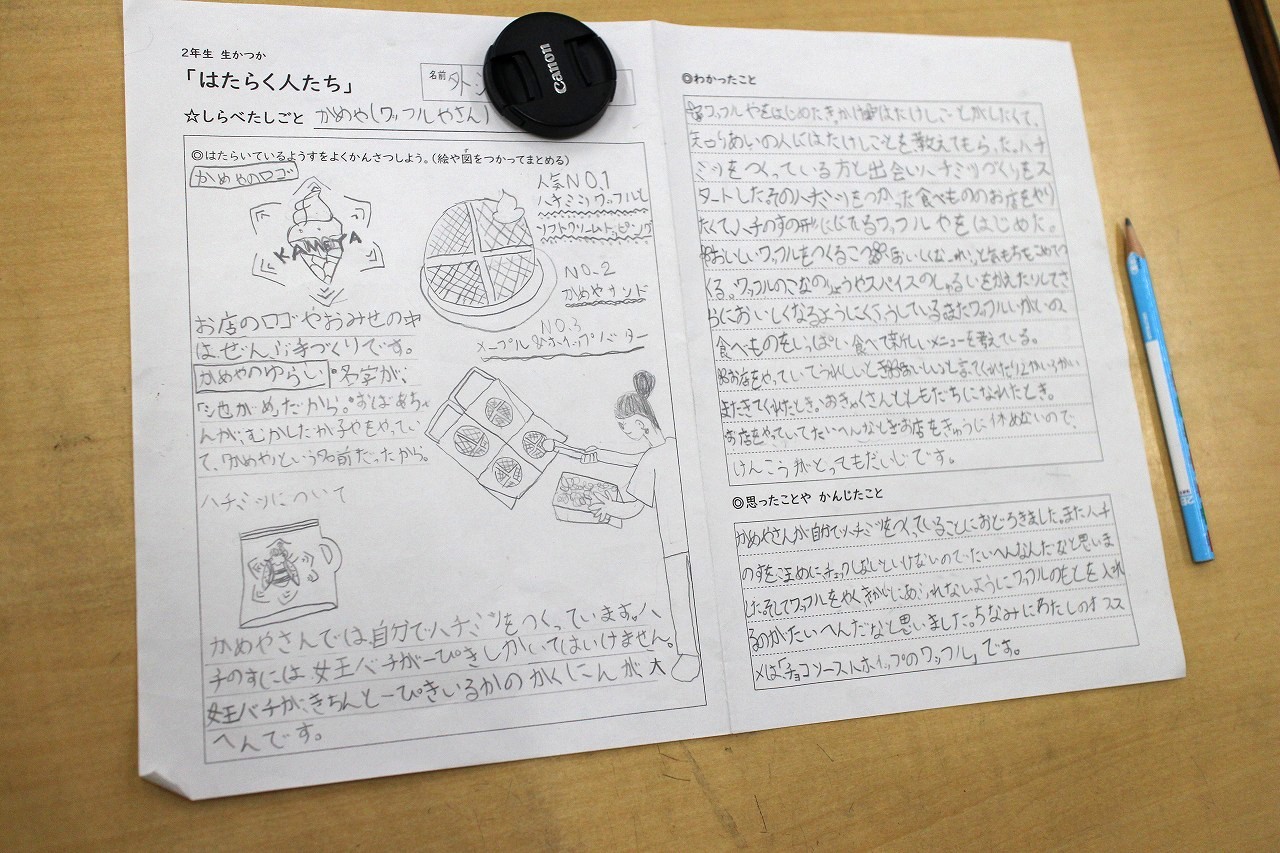 2年生 生かつか
「はたらく人たち」
名前
Canon
☆しらべたしごと かめや(ワッフルやさん)
◎はたらいているようすをよくかんさつしよう。(絵や図をつかってまとめる)
かめやのロゴ
KAMEYA
人気NO.1
ハチミツワッフルと
ソフトクリームトッピング
NO.2
かめやサンド
NO.3
メープル&ホイップバター
お店のロゴやおみせの中
はぜんぶ手づくりです。
かめやのゆらい 。名字が、
だから。おばあちゃ
んが、むかしたか子やをやってい
て、「かめや」という名前だったから。
ハチミツについて
かめやさんでは自分でハチミツをつくっています。ハ
チのすには女王バチが一ぴきしかいてはいけません。
女王バチがきちんと一ぴきいるかのかくにんが大
へんです。
◎わかったこと
ワッフルやをはじめたきかけ はたけしごとがしたくて、
知りあいの人にはたけしごとを教えてもらった。ハチ
ミツをつくっている方と出会いハチミツづくりをス
タートした。そのハチミツをつかった食べもののお店をやり
たくて、ハチのすの形ににてるワッフルやをはじめた。
おいしいワッフルをつくるこつ おいしくなーれ!と気もちをこめてつ
くる。ワッフルのこなのりょうやスパイスのしゅるいをかえたりしてさ
らにおいしくなるようにくふうしているまたワッフルいがいの
食べものをいっぱい食べて新しいメニューを考えている。
お店をやっていてうれしいとき おいしいと言ってくれたり
またきてくれたとき。おきゃくさんとともだちになれたとき。
お店をやっていてたいへんなとき お店をきゅうに休めないので、
けんこうがとってもだいじです。
◎思ったことや かんじたこと
かめやさんが自分でハチミツをつくっていることにおどろきました。またハチ
のすをこまめにチェックしないといけないのでたいへんなんだなと思いま
した。そしてワッフルをやくきかいにあふれないようにワッフルのもとを入れ
るのがたいへんだなと思いました。ちなみにわたしのオスス
メは「チョコソースとホイップのワッフル」です。